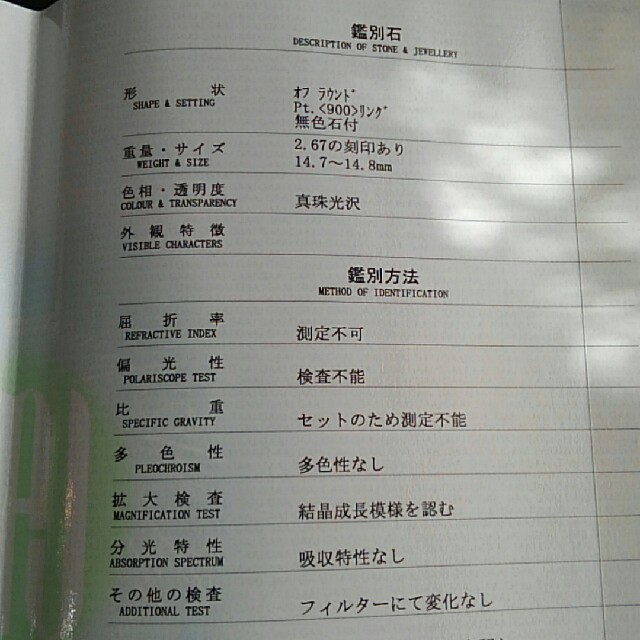 鑑別石
DESCRIPTION OF STONE & JEWELLERY
形状 ｵﾌ ﾗｳﾝﾄﾞ
SHAPE & SETTING Pt.<900>ﾘﾝｸﾞ
無色石付
重量・サイズ 2.67の刻印あり
WEIGHT & SIZE 14.7〜14.8mm
色相・透明度 真珠光沢
COLOUR & TRANSPARENCY
外観特徴
VISIBLE CHARACTERS
鑑別方法
METHOD OF IDENTIFICATION
屈折率 測定不可
REFRACTIVE INDEX
偏光性 検査不能
POLARISCOPE TEST
比重 セットのため測定不能
SPECIFIC GRAVITY
多色性 多色性なし
PLEOCHROISM
拡大検査 結晶成長模様を認む
MAGNIFICATION TEST
分光特性 吸収特性なし
ABSORPTION SPECTRUM
その他の検査 フィルターにて変化なし
ADDITIONAL TEST